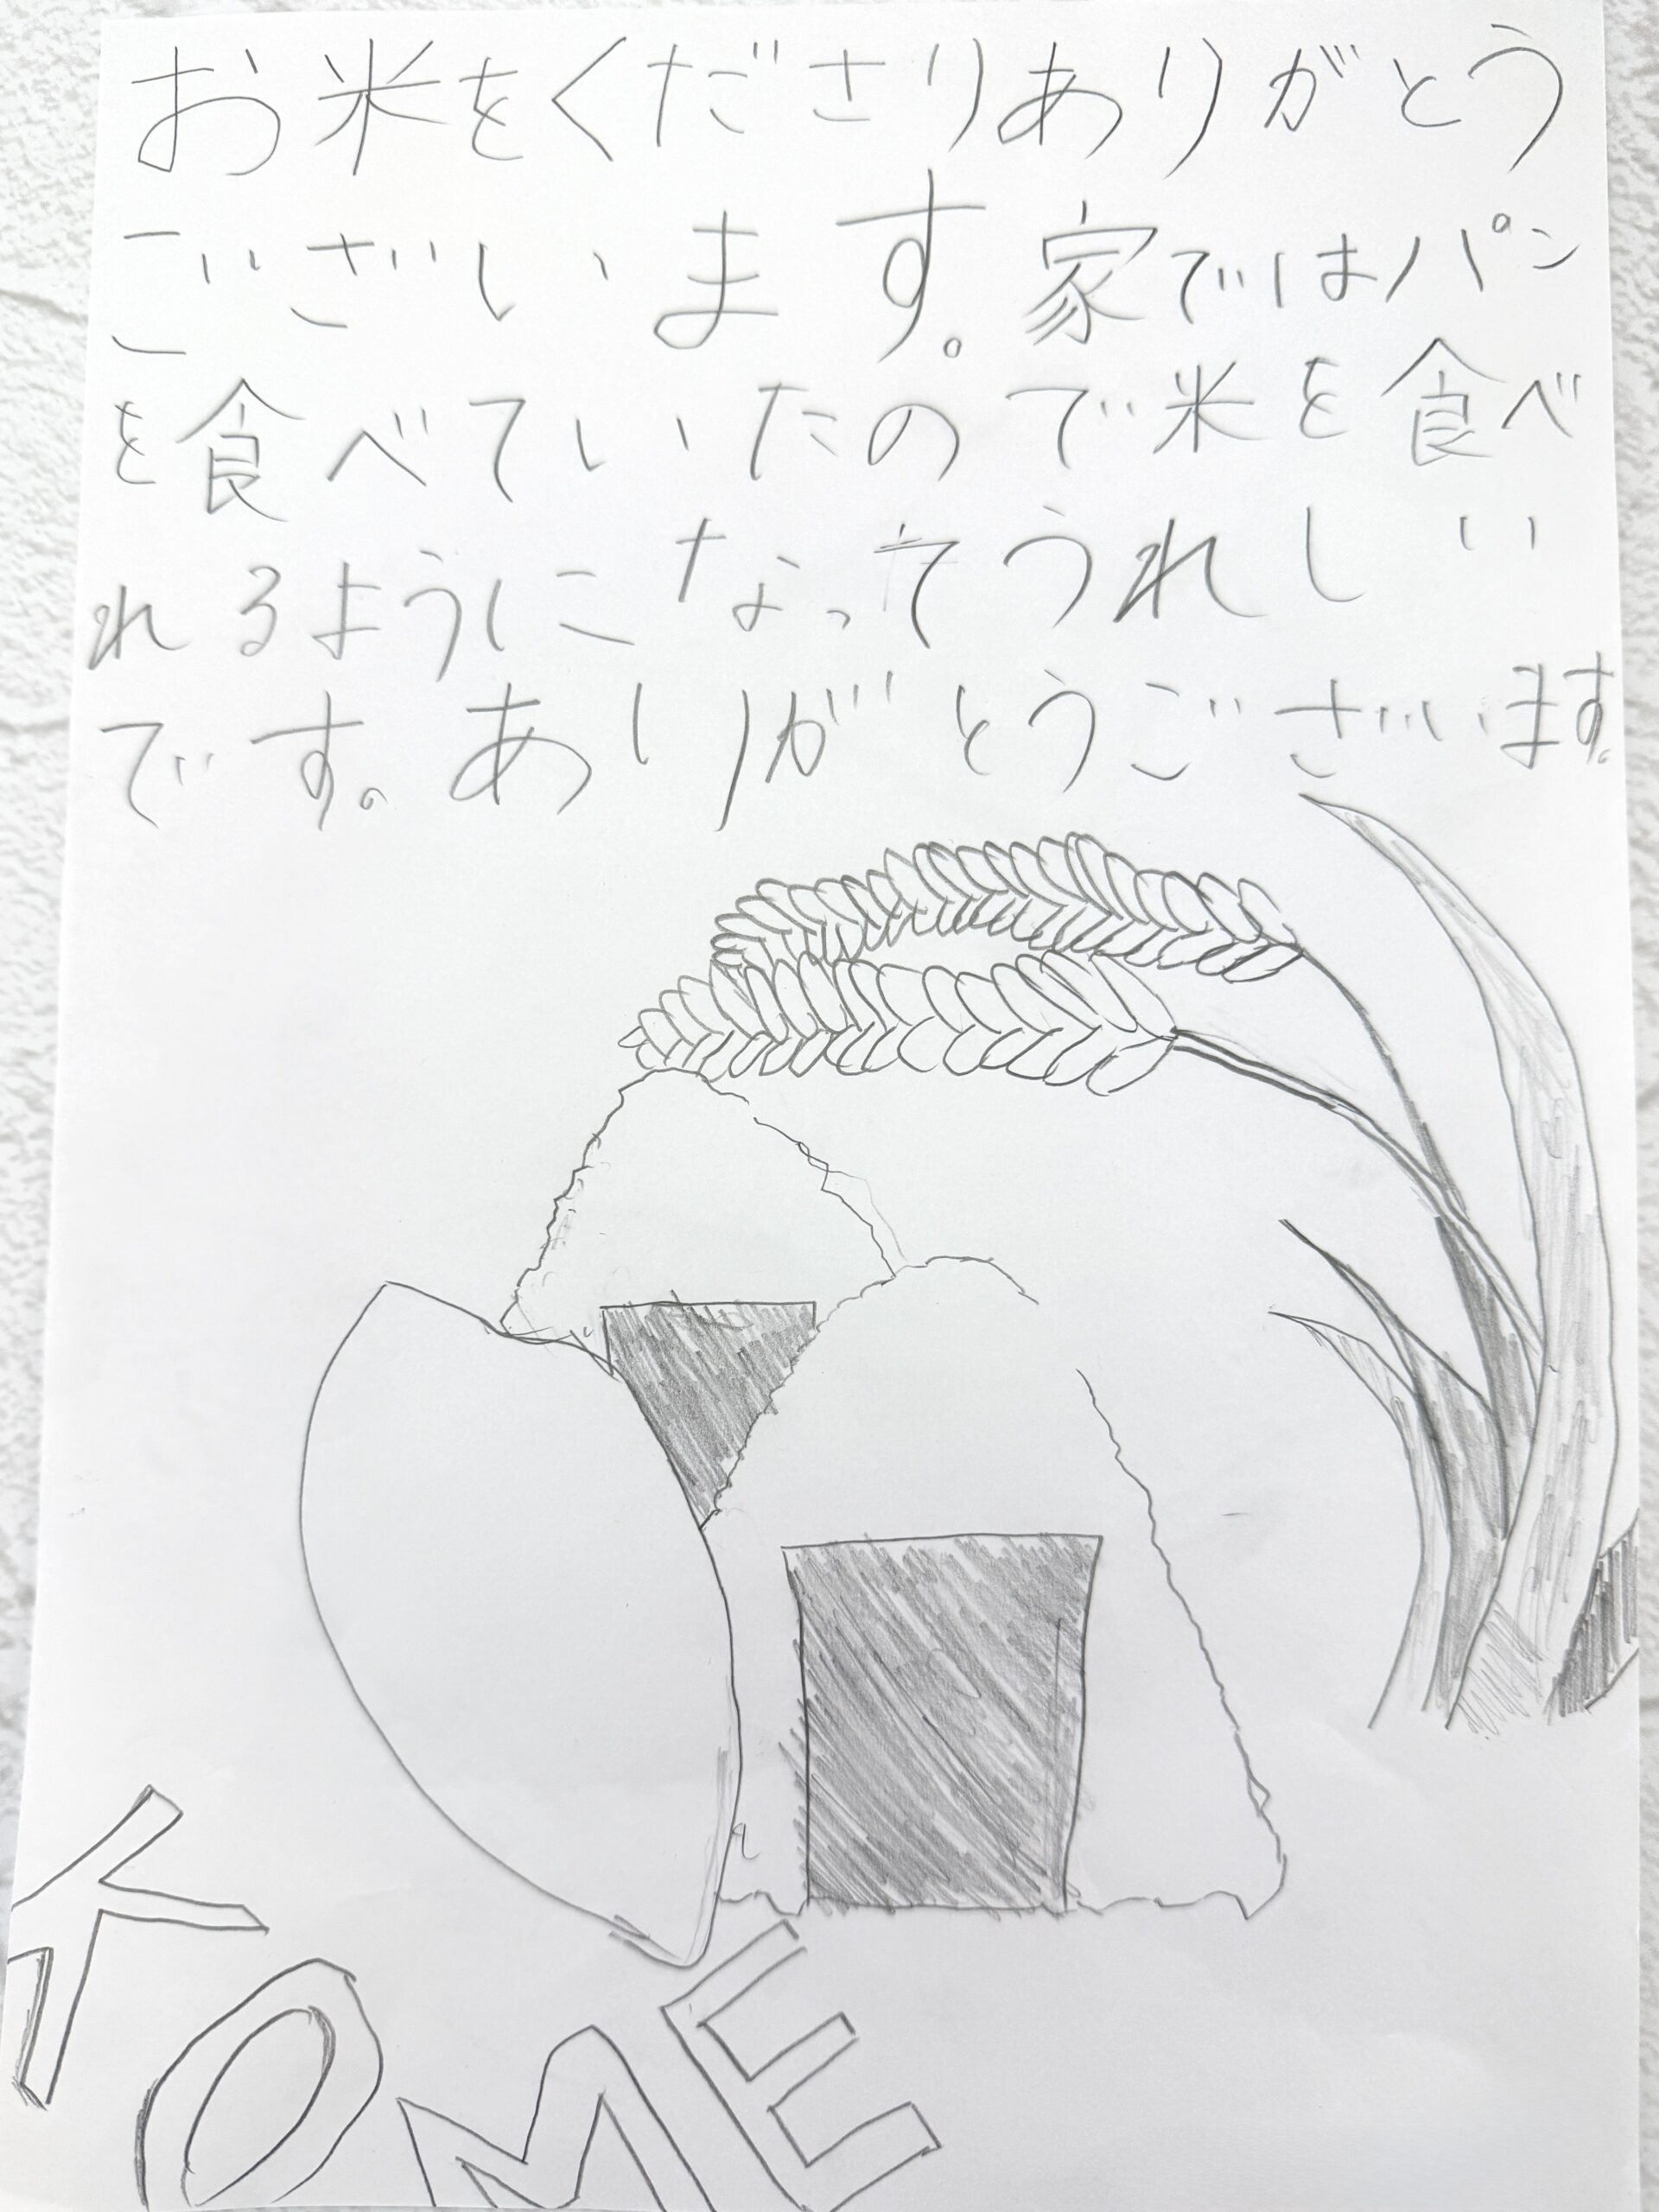 お米をくださりありがとう
ございます。家ではパン
を食べていたので米を食べ
れるようになってうれしい
です。ありがとうございます。
KOME